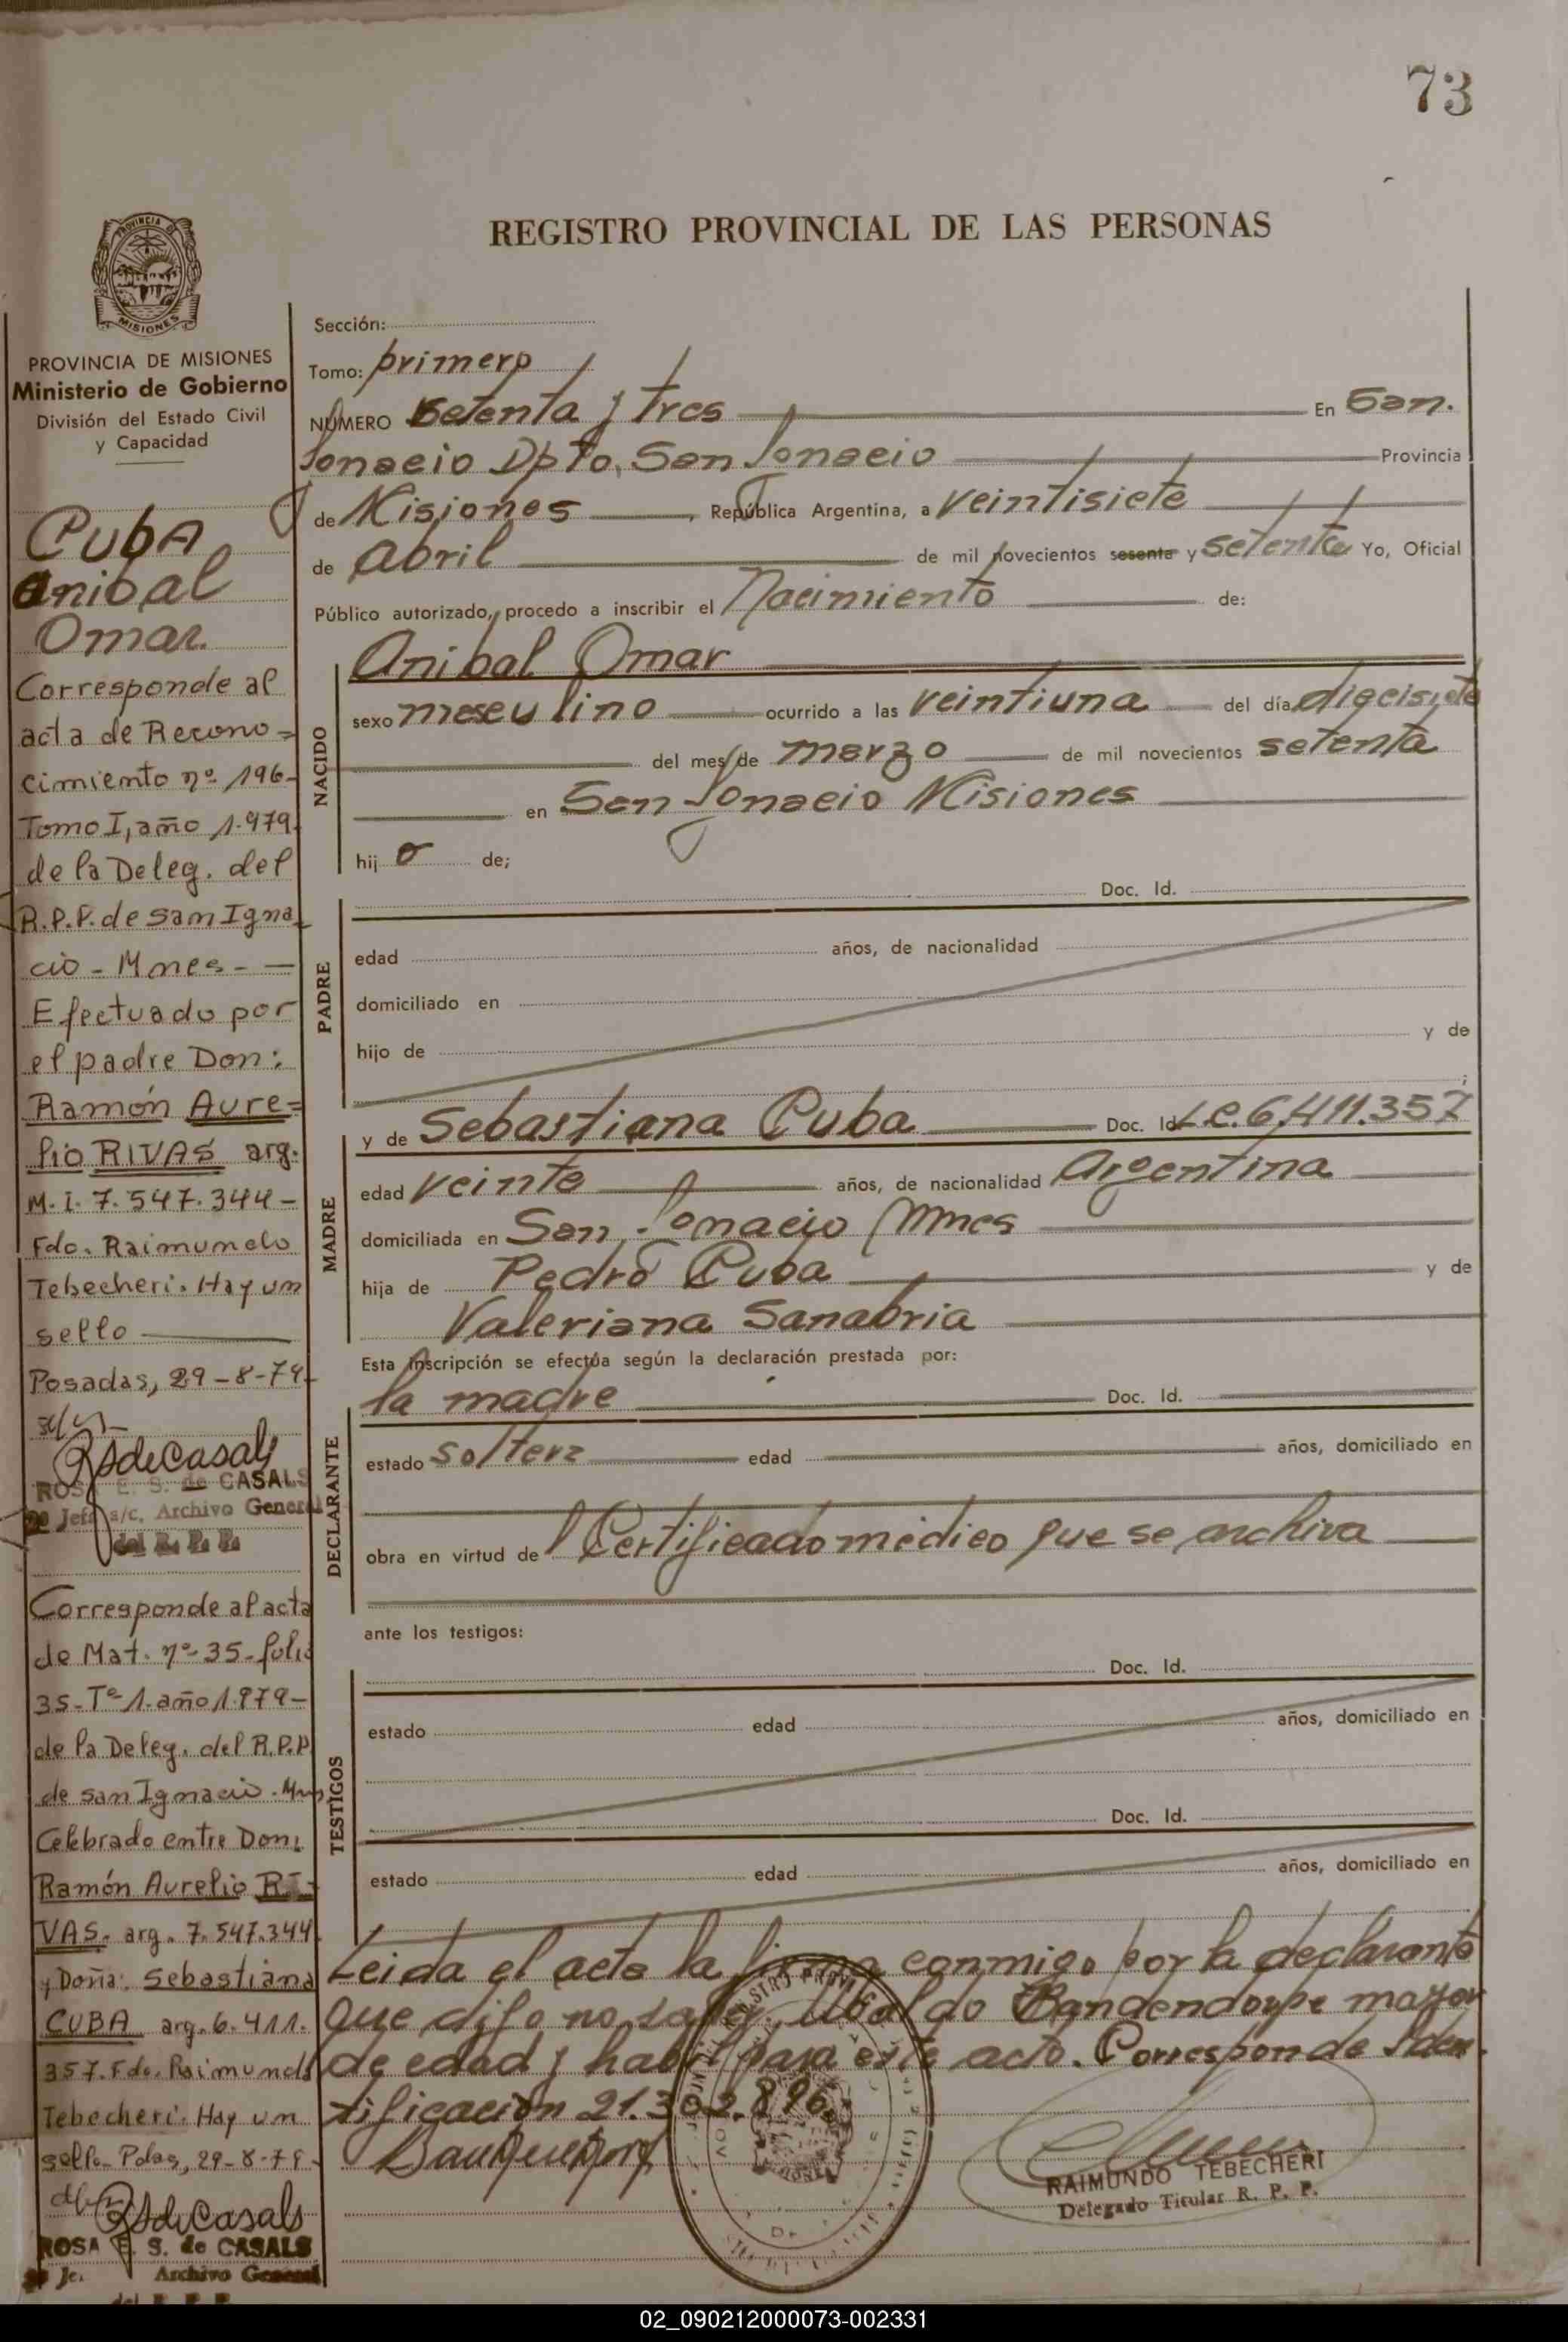 73
REGISTRO PROVINCIAL DE LAS PERSONAS
MISIONES
PROVINCIA DE MISIONES
Ministerio de Gobierno
División del Estado Civil
y Capacidad
Cuba
Anibal
Omar.
Corresponde al
acta de Recono-
cimiento nº 196-
Tomo I, año 1.979
de la Deleg. del
R.P.P. de San Igna
cio - Mnes -
Efectuado por
el padre Don:
Ramón Aure=
lio RIVAS arg.
M.I. 7.547.344-
Fdo. Raimundo
Tebecheri. Hay un
sello
Posadas, 29-8-79-
RSdeCasals
ROSA E. S. de CASALS
Jefe a/c. Archivo General
del R. P. P.
Corresponde al acta
de Mat. nº 35- folio
35- Tº 1- año 1.979-
de la Deleg. del R.P.P
de San Ignacio. Mnes
Celebrado entre Don:
Ramón Aurelio RI-
VAS. arg. 7.547.344
y Doña: Sebastiana
CUBA arg. 6.411.
357. Fdo. Raimundo
Tebecheri. Hay un
sello Pdas, 29-8-79-
RSdeCasals
ROSA E. S. de CASALS
Je. Archivo General
del R. P. P.
Sección:
Tomo: primero
NÚMERO Setenta y tres En San.
Ignacio Dpto, San Ignacio Provincia
de Misiones, República Argentina, a veintisiete
de Abril de mil novecientos sesenta y setenta Yo, Oficial
Público autorizado, procedo a inscribir el Nacimiento de:
NACIDO
Anibal Omar
sexo masculino ocurrido a las veintiuna del día diecisiete
del mes de marzo de mil novecientos setenta
en San Ignacio Misiones
hij o de;
PADRE
Doc. Id.
edad años, de nacionalidad
domiciliado en
hijo de y de
;
MADRE
y de Sebastiana Cuba Doc. Id. L.C. 6.411.357
edad veinte años, de nacionalidad Argentina
domiciliada en San Ignacio Mnes
hija de Pedro Cuba y de
Valeriana Sanabria
Esta inscripción se efectúa según la declaración prestada por:
DECLARANTE
la madre Doc. Id.
estado soltera edad años, domiciliado en
obra en virtud de l Certificado médico que se archiva
ante los testigos:
TESTIGOS
Doc. Id.
estado edad años, domiciliado en
Doc. Id.
estado edad años, domiciliado en
Leida el acta la firma conmigo por la declarante
que dijo no saber, Ubaldo Bandendorpe mayor
de edad y habil para este acto. Corresponde Iden
tificación 21.302.896.
RAIMUNDO TEBECHERI
Delegado Titular R. P. P.
02_090212000073-002331